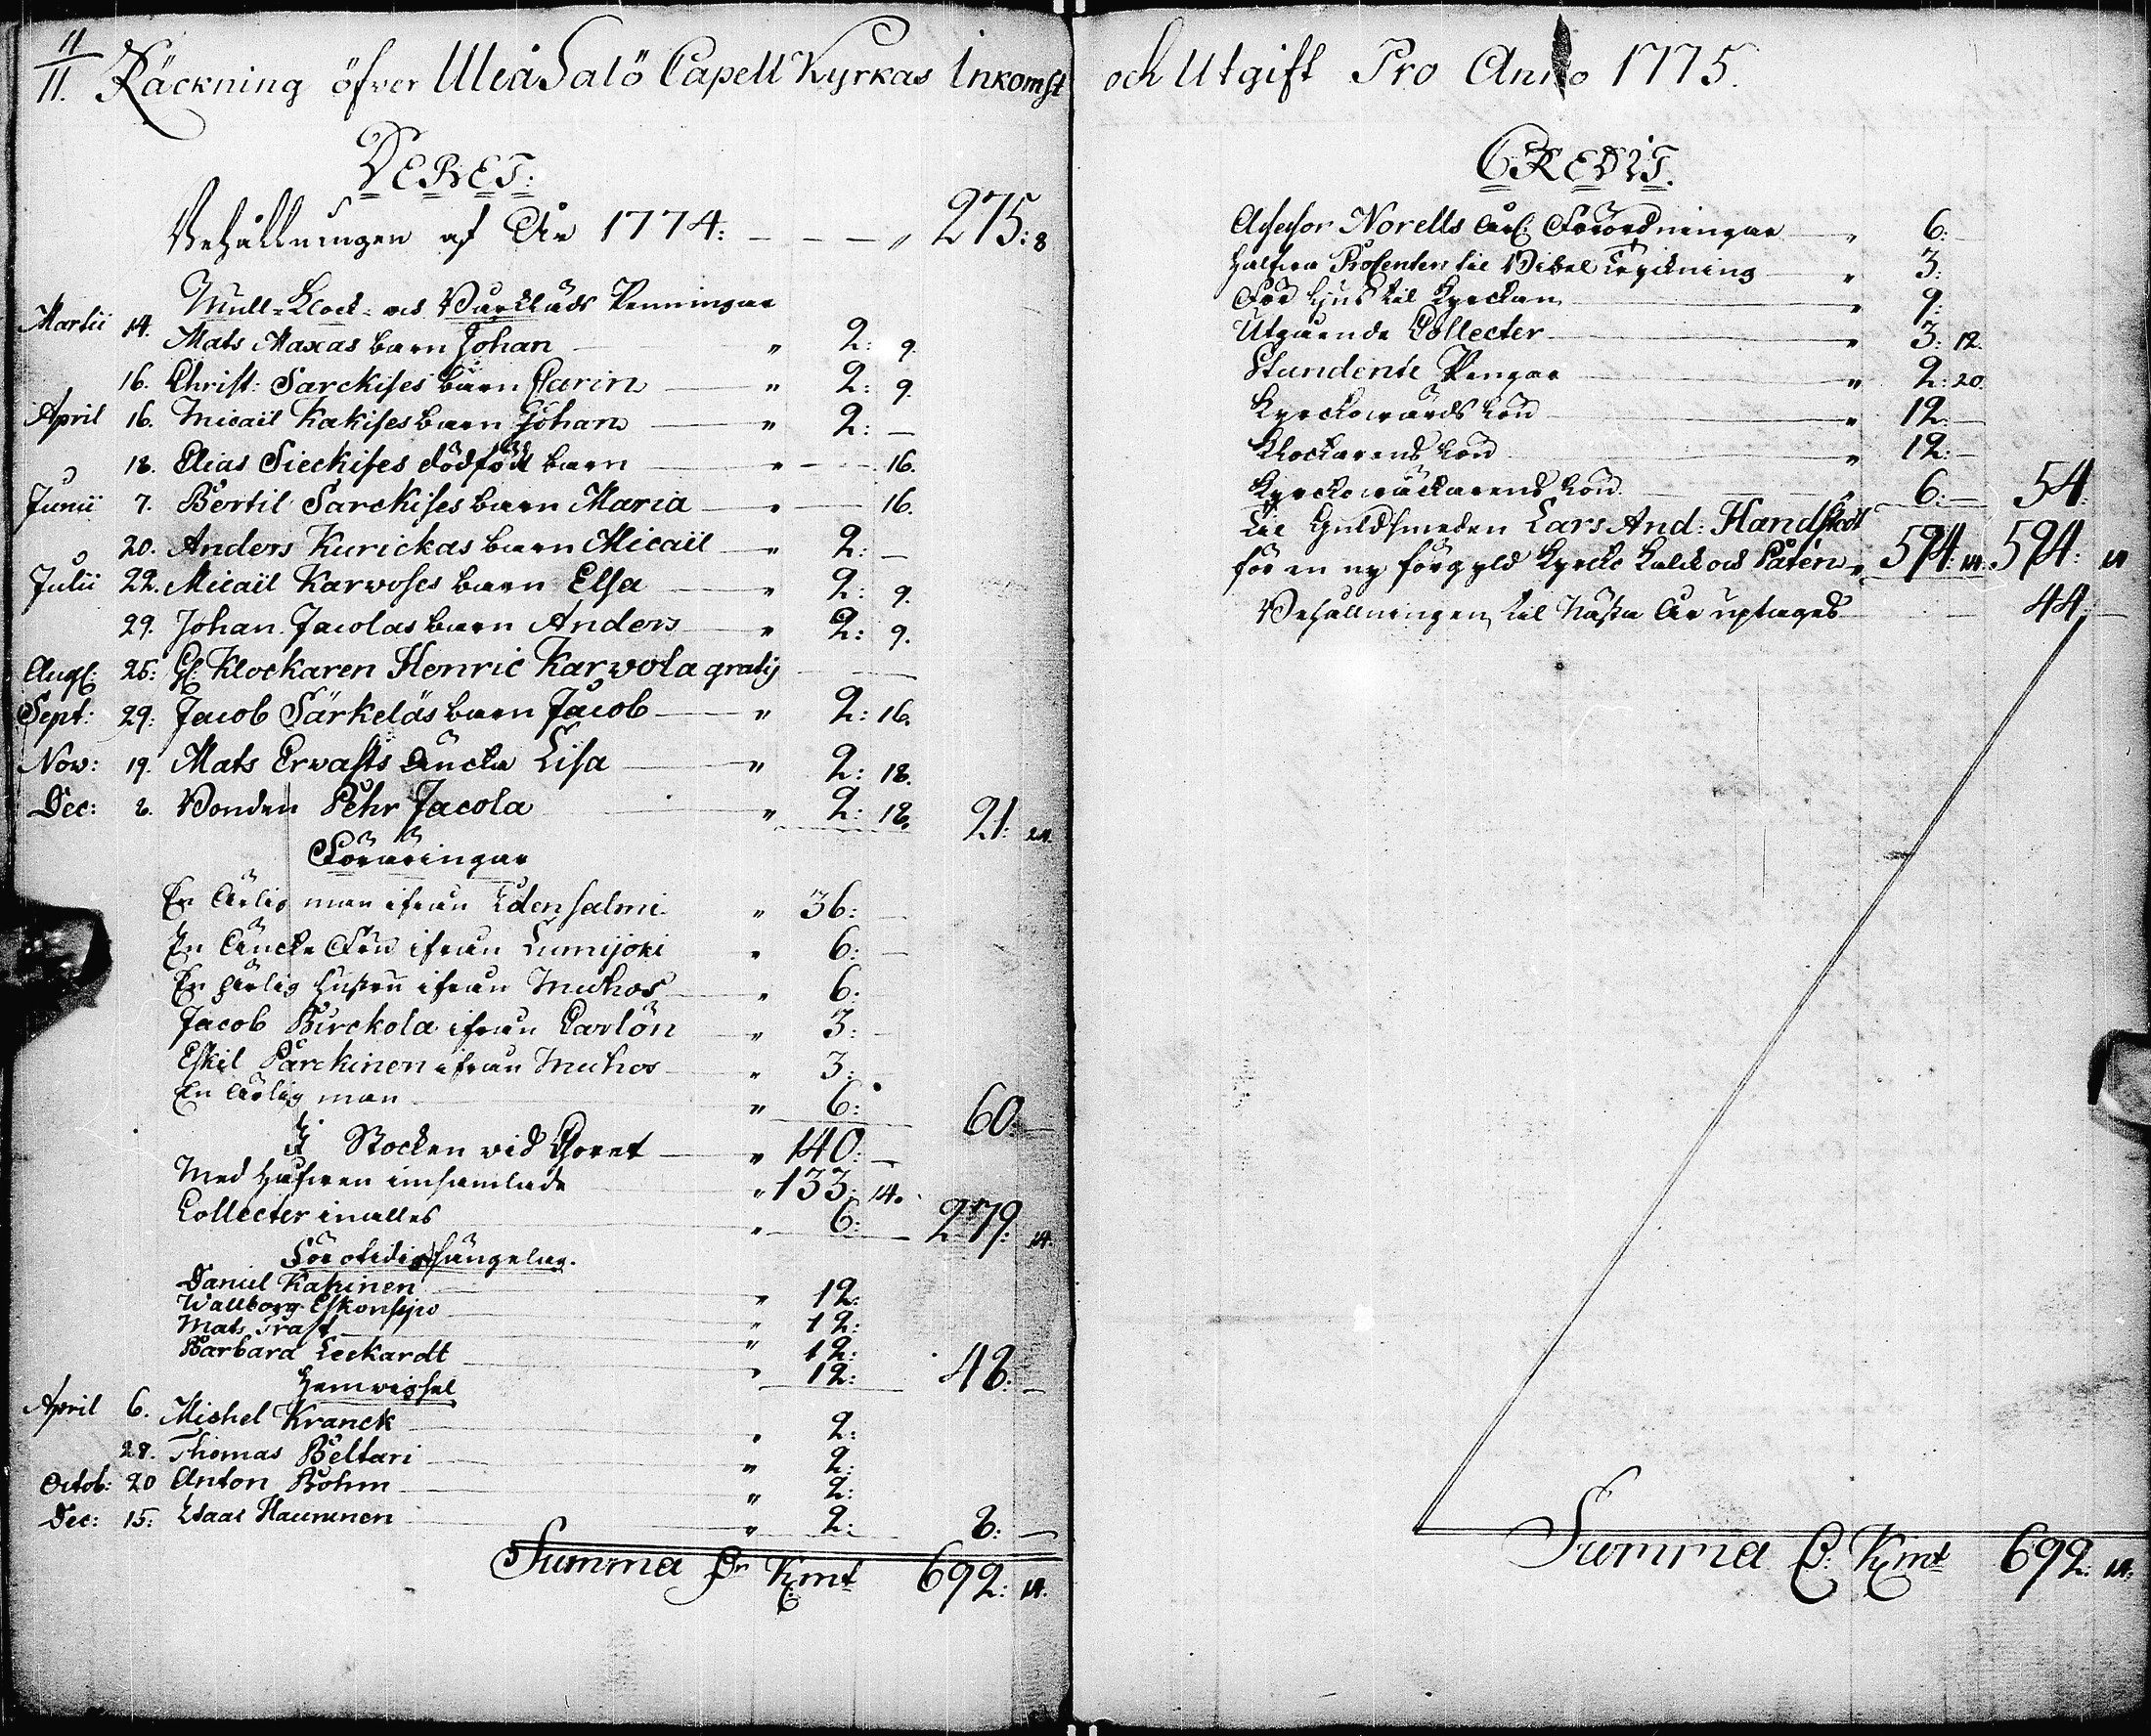 11
11. Räckning öfver Uleå Salö Capell Kyrkas Inkomst
DEBET:
Behållningen af År 1774: " 275: 8
Mull- Klock- och Bårkläds Penningar
Martii 14. Mats Maxas barn Johan " 2: 9.
16. Christ: Sarckises barn Carin " 2: 9.
April 16. Micaël Kakises barn Johan " 2: —
18. Elias Sieckises dödfödt barn " — 16.
Junii 7. Bertil Sarckises barn Maria " — 16.
20. Anders Kurickas barn Micaël " 2: —
Julii 22. Micaël Karwoses barn Elsa " 2: 9.
29. Johan Jacolas barn Anders " 2: 9.
Aug: 25: Gl: Klockaren Henric Karwola gratis
Sept: 29: Jacob Särkeläs barn Jacob " 2: 16.
Nov: 19. Mats Erwasts Äncka Lisa " 2: 18.
Dec: 8. Bonden Pehr Jacola " 2: 18. 21: 24.
Föräringar
En Ärlig man ifrån Idensalmi " 36: —
En Äncke Fru ifrån Lumijoki " 6: —
En Ärlig hustru ifrån Muhos " 6:
Jacob Pirckola ifrån Carlön " 3: —
Eskil Parckinen ifrån Muhos " 3: —
En Ärlig man " 6: 60: —
I Stocken vid Choret " 140: —
Med Håfwen insamlade " 133: 14.
Collecter inalles " 6: — 279: 14.
För otidig sängelag.
Daniel Kahinen " 12:
Wallborg Eskonsipo " 12:
Mats Trast " 12:
Barbara Leckardt " 12: 48: —
Hemvigsel
April 6. Michel Kranck " 2:
28. Thomas Beltari " 2:
Octob: 20 Anton Bohm " 2:
Dec: 15: Isaac Haurunen " 2: 8: —
Summa Dr Kmt 692: 14.
och Utgift Pro Anno 1775.
CREDIT.
Assessor Norells Förordningar " 6: —
Halfwa ProCenten til Bibel Tryckning " 3:
För Ljus til Kyrckan " 9:
Utgående Collecter " 3: 12.
Studente Pengar " 2: 20.
Kyrckowärds Lön " 12: —
Klockarens Lön " 12: —
Kyrckowäckarens Lön " 6: — 54:
Til Guldsmeden Lars And: Handstedt
för en ny förgyld Kyrcko Kalck och Patén " 594: 14. 594: 14
Behållningen til Nästa År uptages 44: —
Summa C: Kmt 692: 14: